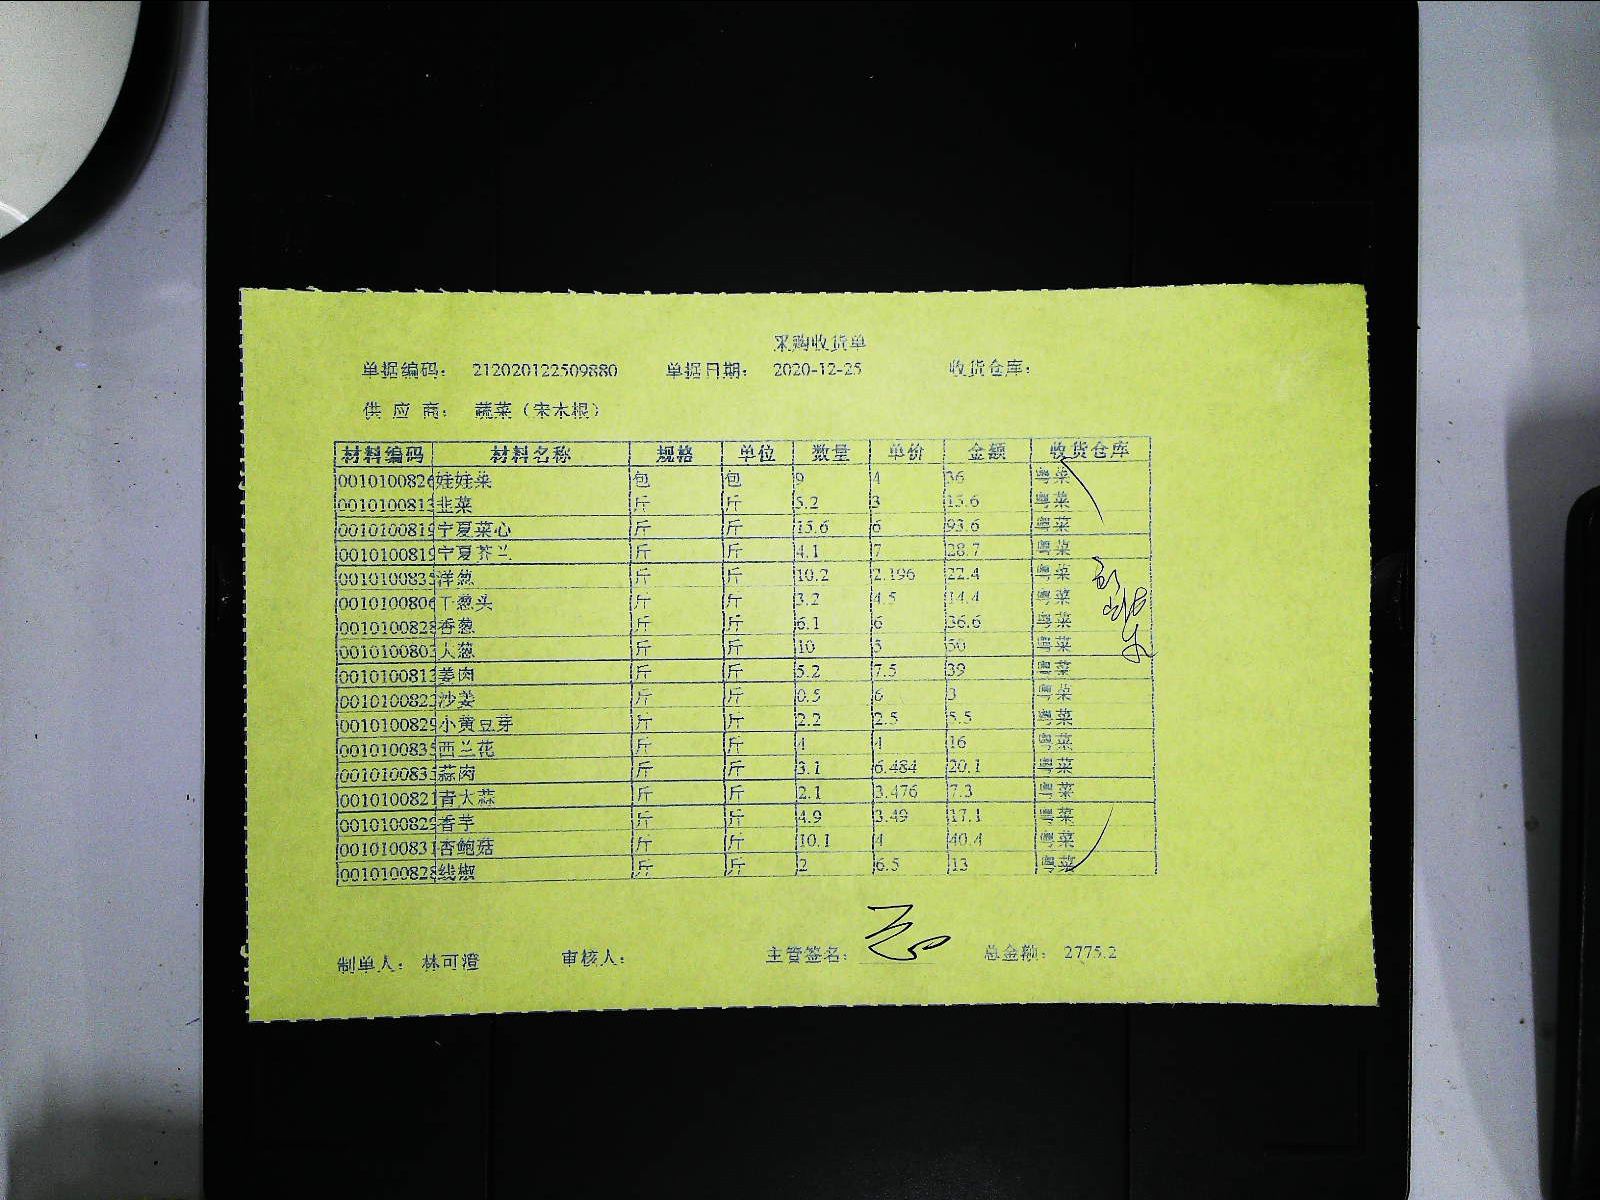 采购收货单
单据编码： 212020122509880 单据日期： 2020-12-25 收货仓库：
供 应 商： 蔬菜（宋木根）
材料编码 材料名称 规格 单位 数量 单价 金额 收货仓库
0010100826 娃娃菜 包 包 9 4 36 粤菜
001010081 韭菜 斤 斤 5.2 3 15.6 粤菜
001010081 宁夏菜心 斤 斤 15.6 6 93.6 粤菜
001010081 宁夏芥兰 斤 斤 4.1 7 28.7 粤菜
001010083 洋葱 斤 斤 10.2 2.196 22.4 粤菜
001010080 干葱头 斤 斤 3.2 4.5 14.4 粤菜
001010082 香葱 斤 斤 6.1 6 36.6 粤菜
001010080 大葱 斤 斤 10 5 50 粤菜
001010081 姜肉 斤 斤 5.2 7.5 39 粤菜
001010082 沙姜 斤 斤 0.5 6 3 粤菜
001010082 小黄豆芽 斤 斤 2.2 2.5 5.5 粤菜
001010083 西兰花 斤 斤 4 4 16 粤菜
001010083 蒜肉 斤 斤 3.1 6.484 20.1 粤菜
001010082 青大蒜 斤 斤 2.1 3.476 7.3 粤菜
001010082 香芋 斤 斤 4.9 3.49 17.1 粤菜
001010083 杏鲍菇 斤 斤 10.1 4 40.4 粤菜
001010082 线椒 斤 斤 2 6.5 13 粤菜
制单人： 林可澄 审核人： 主管签名： 总金额： 2775.2